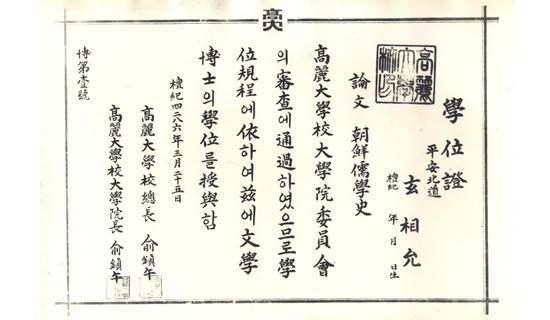 高大
學位證
平安北道
玄相允
檀紀 年 月 日生
論文 朝鮮儒學史
高麗大學校大學院委員會
의審査에通過하였으므로學
位規程에依하여玆에文學
博士의學位를授與함
檀紀四二八六年三月二十五日
高麗大學校總長 兪鎭午
高麗大學校大學院長 兪鎭午
博第壹號